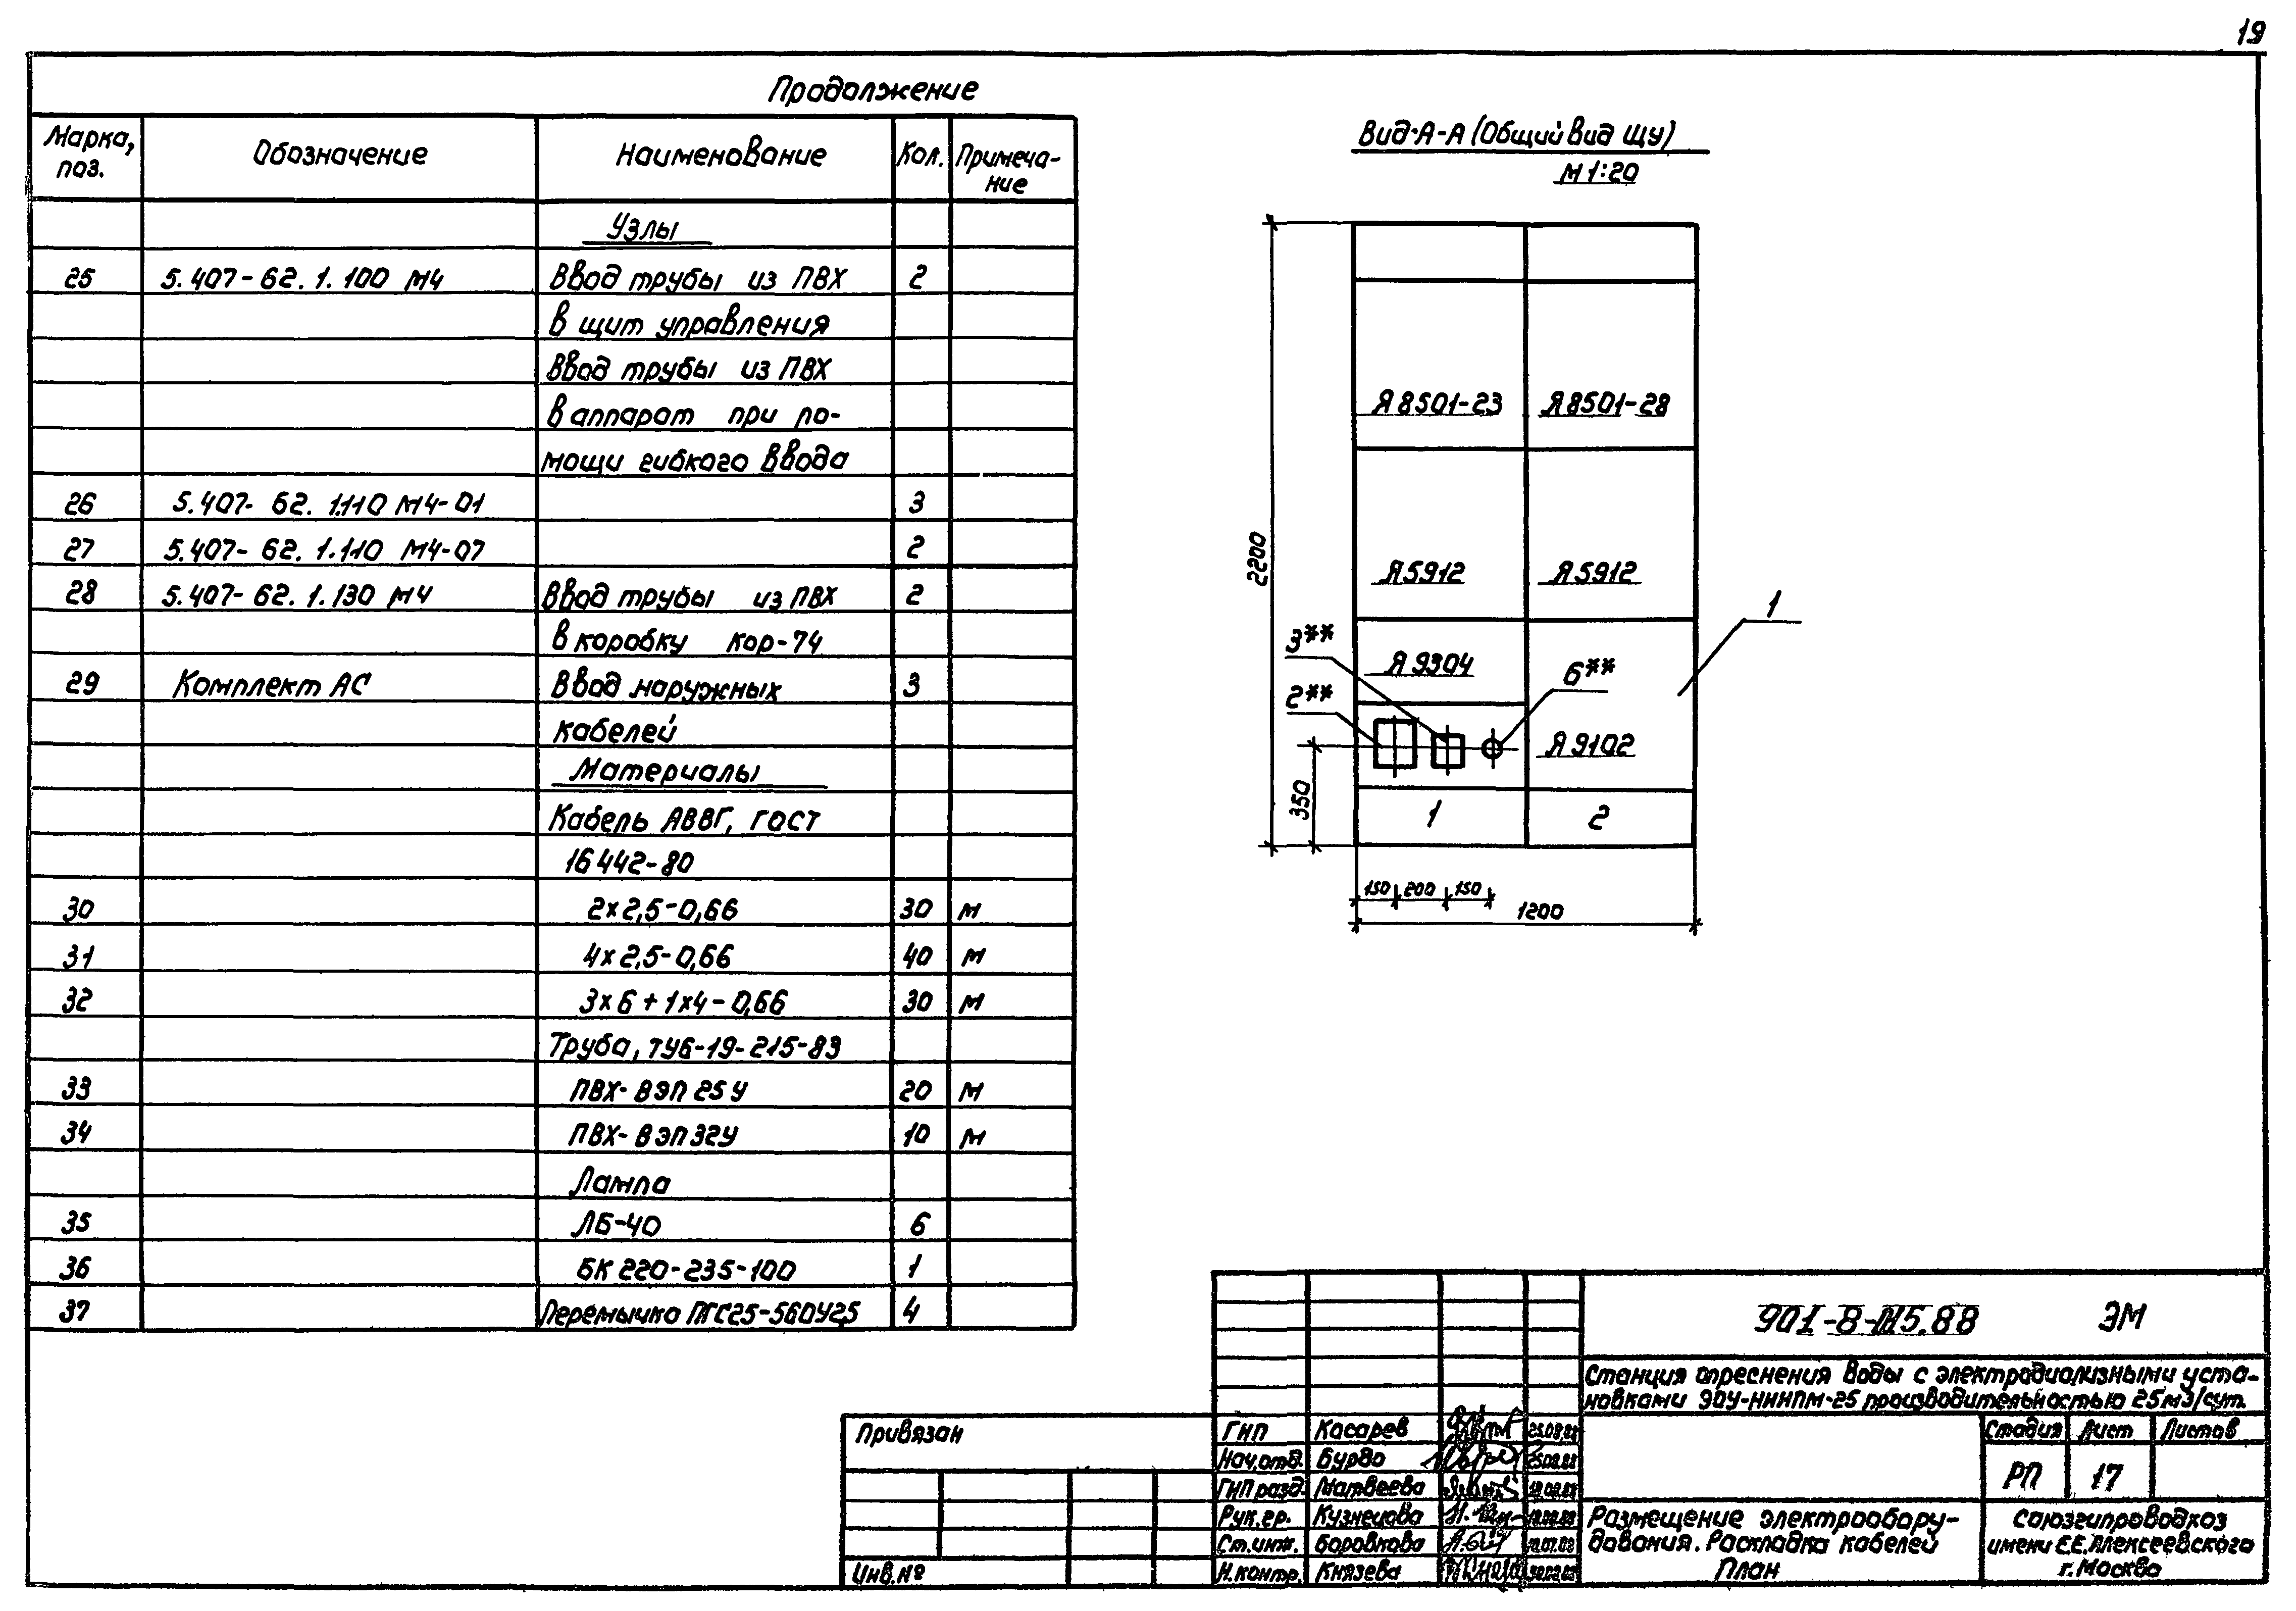 19
Продолжение
Марка, поз. Обозначение Наименование Кол. Примеча-
ние
Узлы
25 5.407-62.1.100 М4 Ввод трубы из ПВХ 2
в щит управления
Ввод трубы из ПВХ
в аппарат при по-
мощи гибкого ввода
26 5.407-62.1.110 М4-01 3
27 5.407-62.1.110 М4-07 2
28 5.407-62.1.130 М4 Ввод трубы из ПВХ 2
в коробку кор-74
29 Комплект АС Ввод наружных 3
кабелей
Материалы
Кабель АВВГ, ГОСТ
16442-80
30 2х2,5-0,66 30 м
31 4х2,5-0,66 40 м
32 3х6+1х4-0,66 30 м
Труба, ТУ6-19-215-83
33 ПВХ-ВЭП 25У 20 м
34 ПВХ-ВЭП 32У 10 м
Лампа
35 ЛБ-40 6
36 БК 220-235-100 1
37 Перемычка ПГС25-560У2,5 4
Вид А-А (Общий вид ЩУ)
М 1:20
2200
Я8501-23 Я8501-28
Я5912 Я5912
1
3**
Я9304 6**
2**
Я9102
350
1 2
150 200 150
1200
901-8-  5.88 ЭМ
Станция опреснения воды с электродиализными уста-
новками ЭОУ-НИИПМ-25 производительностью 25м3/сут.
Привязан
Инв.№
ГИП Касарев 25.08.88
Нач.отд. Бурдо
ГИП разд. Матвеева
Рук.гр. Кузнецова
Ст.инж. Боровкова
Н.контр. Князева
Стадия Лист Листов
РП 17
Размещение электрообору-
дования. Раскладка кабелей
План
Союзгипроводхоз
имени Е.Е.Алексеевского
г.Москва